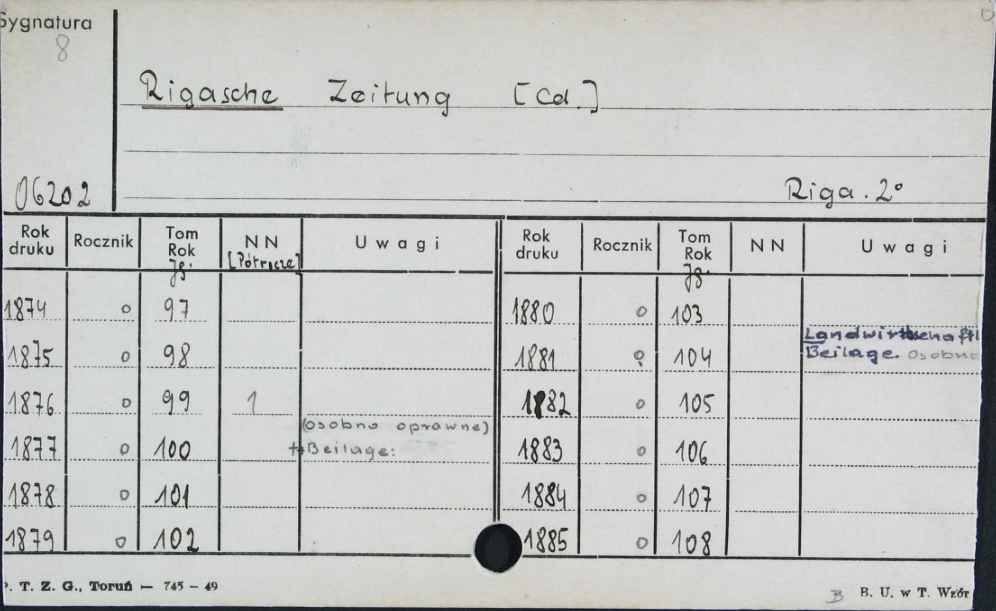 Sygnatura
8
Rigasche Zeitung [Cd.]
06202
Riga. 2°
Rok druku Rocznik Tom Rok Jg. NN [Półrocze] Uwagi Rok druku Rocznik Tom Rok Jg. NN Uwagi
1874 o 97 1880 o 103
1875 o 98 1881 o 104 Landwirthschaftl
Beilage. osobno
1876 o 99 1 1882 o 105
(osobno oprawne)
1877 o 100 + Beilage: 1883 o 106
1878 o 101 1884 o 107
1879 o 102 1885 o 108
. T. Z. G., Toruń — 745 – 49
B B. U. w T. Wzór